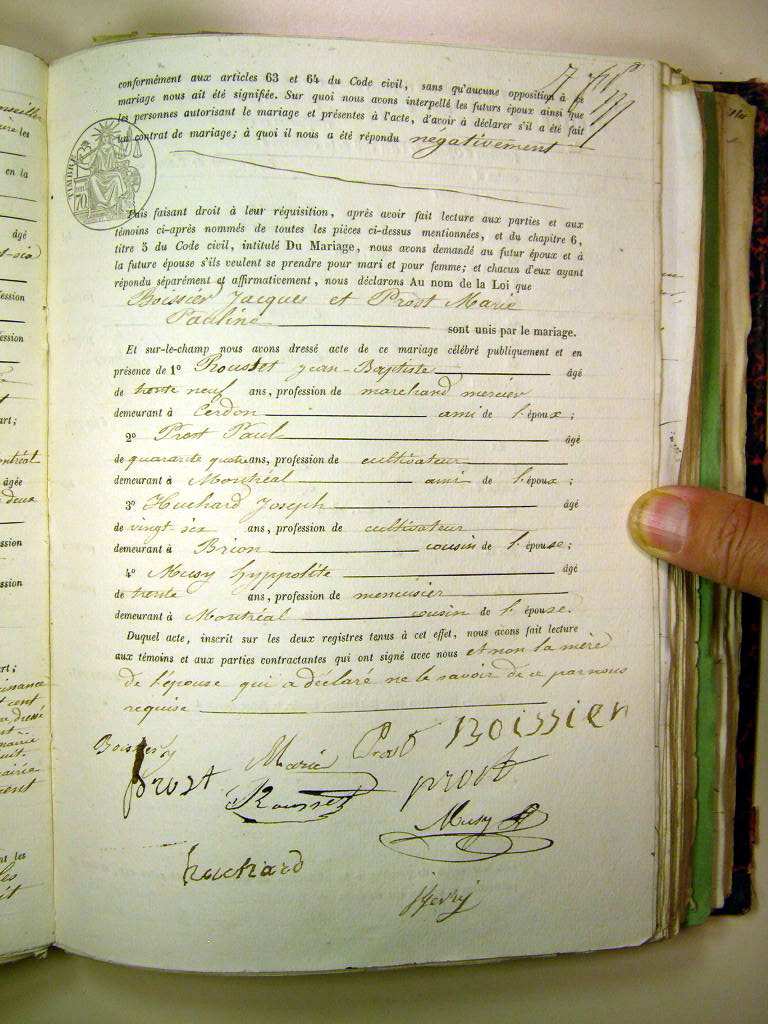 conformément aux articles 63 et 64 du Code civil, sans qu'aucune opposition à ce
mariage nous ait été signifiée. Sur quoi nous avons interpellé les futurs époux ainsi que
les personnes autorisant le mariage et présentes à l'acte, d'avoir à déclarer s'il a été fait
un contrat de mariage; à quoi il nous a été répondu négativement
TIMBRE
70
Puis faisant droit à leur réquisition, après avoir fait lecture aux parties et aux
témoins ci-après nommés de toutes les pièces ci-dessus mentionnées, et du chapitre 6,
titre 5 du Code civil, intitulé Du Mariage, nous avons demandé au futur époux et à
la future épouse s'ils veulent se prendre pour mari et pour femme; et chacun d'eux ayant
répondu séparément et affirmativement, nous déclarons Au nom de la Loi que
Boissier Jacques et Prost Marie
Pauline sont unis par le mariage.
Et sur-le-champ nous avons dressé acte de ce mariage célébré publiquement et en
présence de 1º Rousset Jean-Baptiste âgé
de trente neuf ans, profession de marchand mercier
demeurant à Cerdon ami de l'époux;
2º Prost Paul âgé
de quarante quatre ans, profession de cultivateur
demeurant à Montréal ami de l'époux;
3º Huchard Joseph âgé
de vingt six ans, profession de cultivateur
demeurant à Brion cousin de l'épouse;
4º Musy hyppolite âgé
de trente ans, profession de menuisier
demeurant à Montréal cousin de l'épouse.
Duquel acte, inscrit sur les deux registres tenus à cet effet, nous avons fait lecture
aux témoins et aux parties contractantes qui ont signé avec nous et non la mère
de l'épouse qui a déclaré ne le savoir de ce par nous
requise
Marie Prost Boissier
prost Rousset prost
Musy
huchard